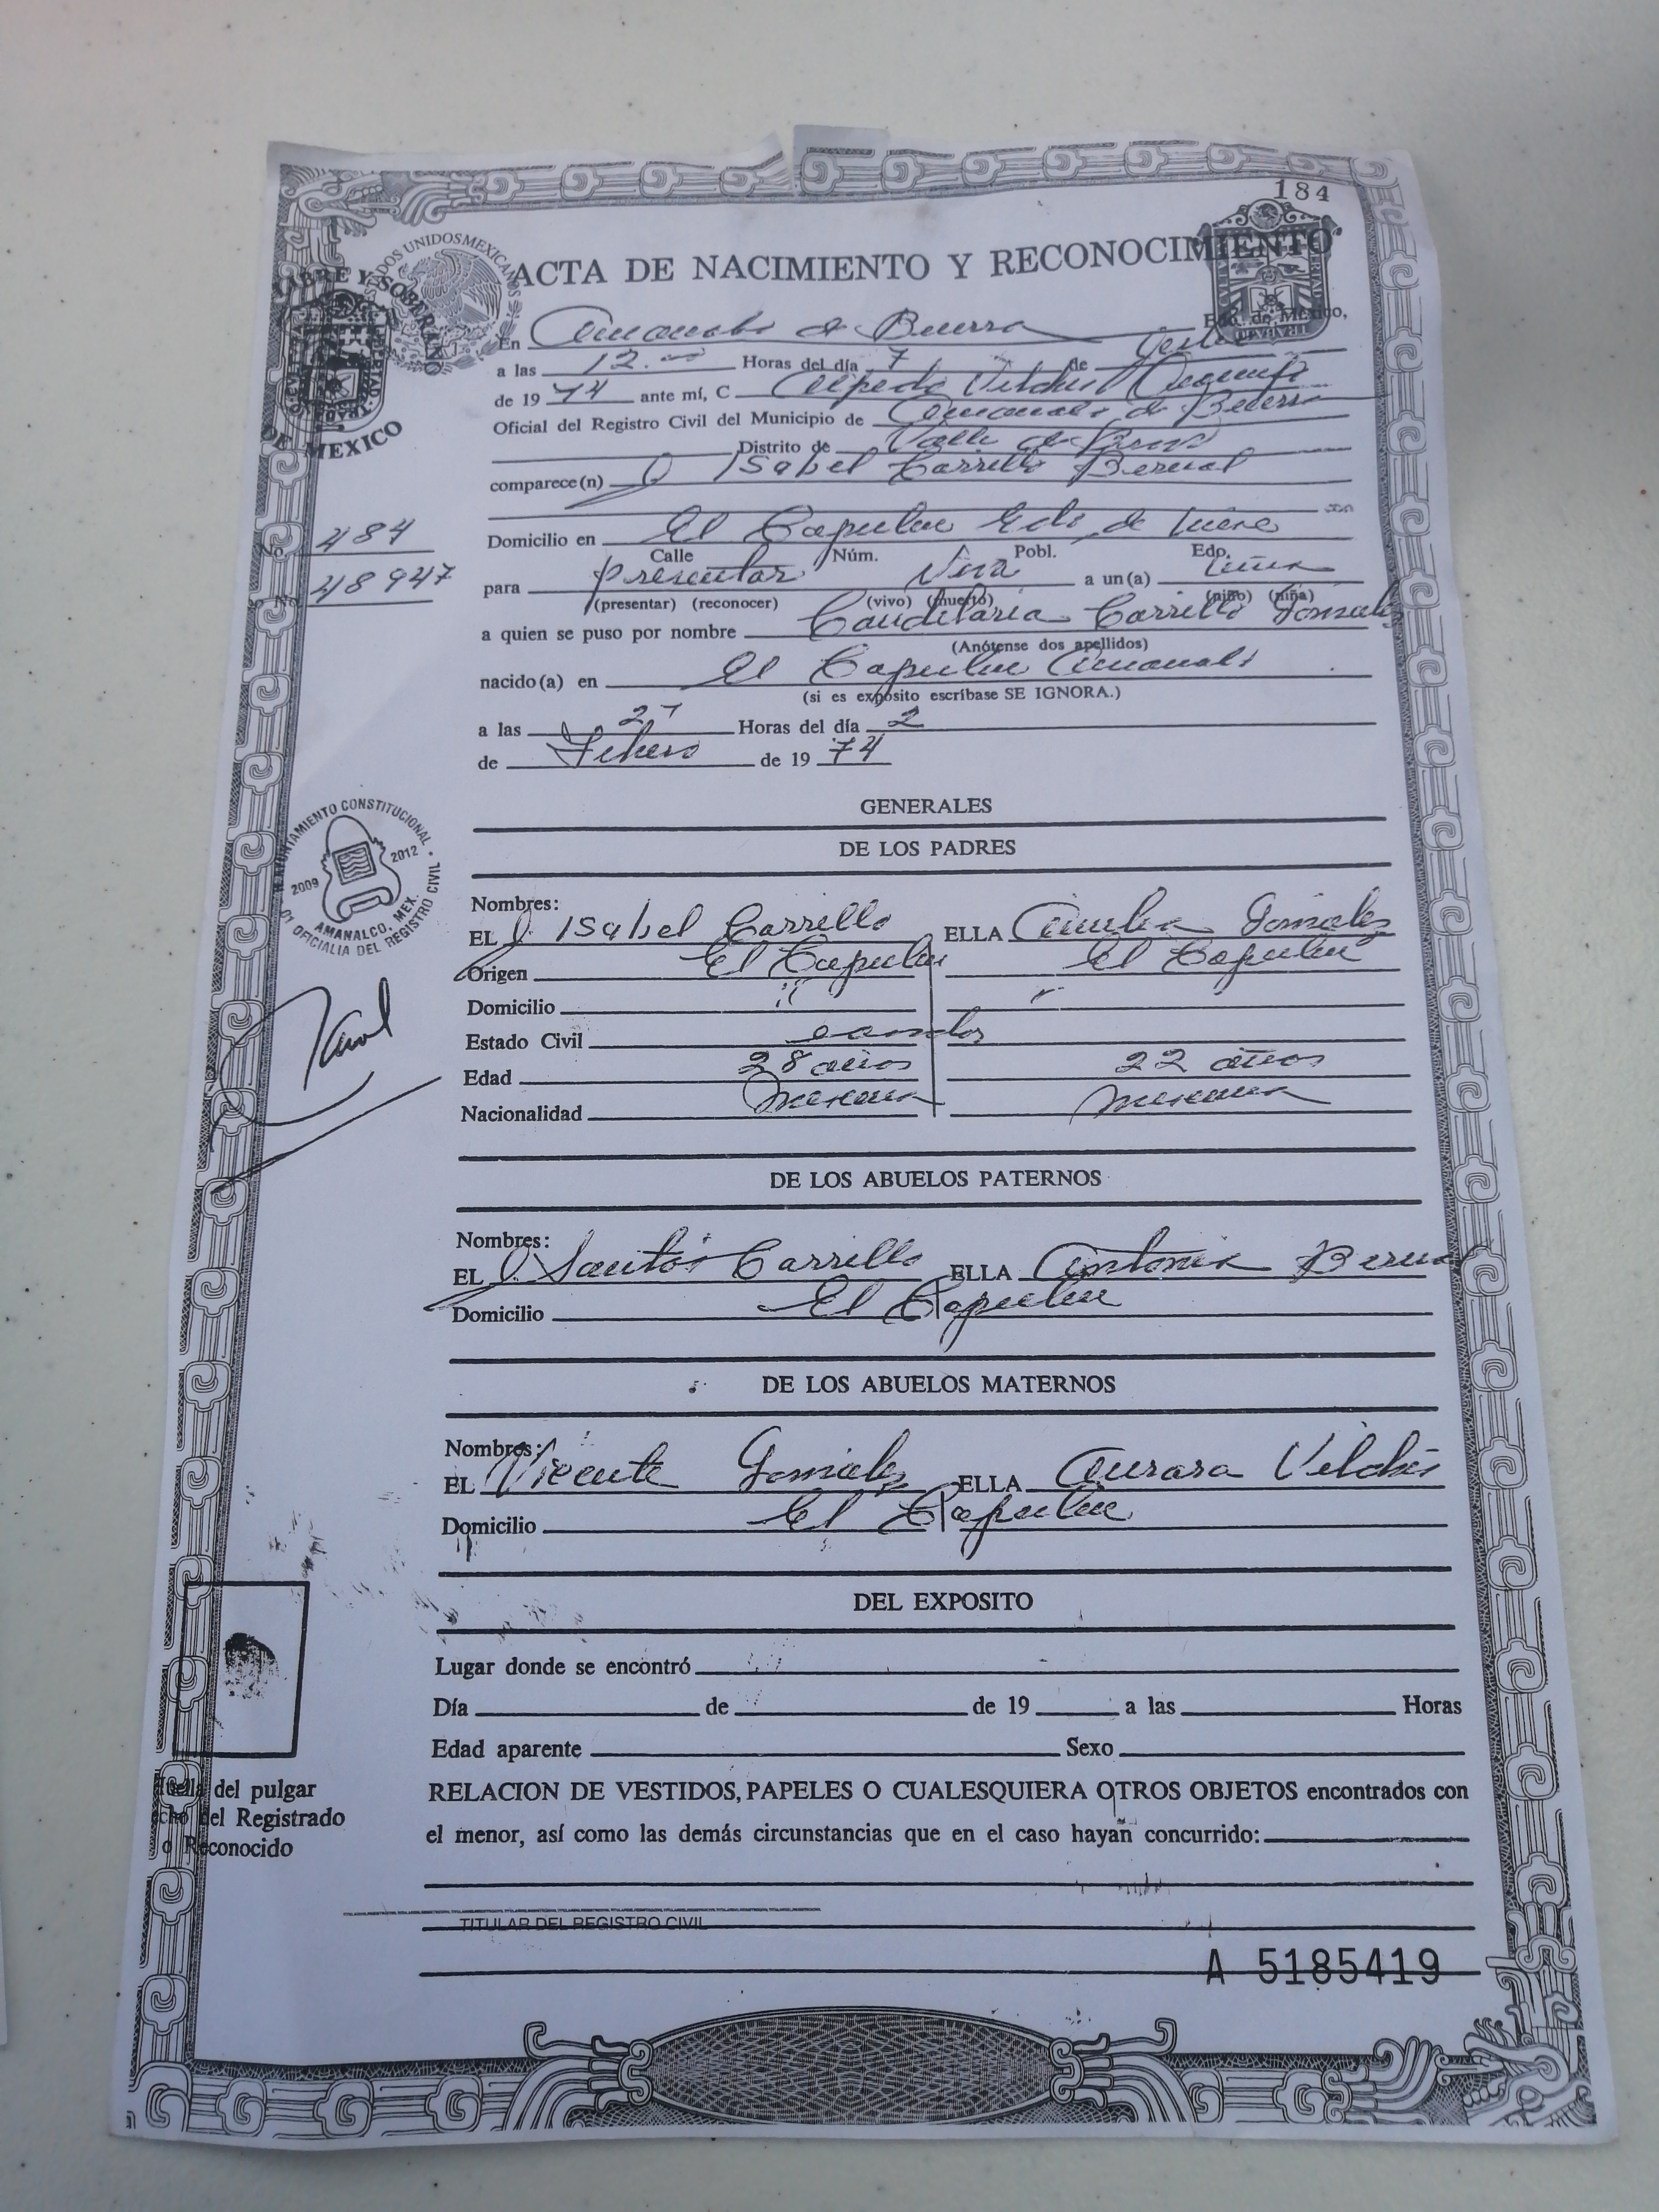 184
ESTADOS UNIDOS MEXICANOS
LIBRE Y SOBERANO
DE MEXICO
ACTA DE NACIMIENTO Y RECONOCIMIENTO
En Amanalco de Becerra Edo. de México,
a las 12.00 Horas del día 7 de
de 1974 ante mí, C Vilchis
Oficial del Registro Civil del Municipio de Amanalco de Becerra
Distrito de Valle de Bravo
comparece(n) J Isabel Carrillo Bernal
Domicilio en El Capulin
Calle Núm. Pobl. Edo.
No. 484
48947
para presentar viva a un(a) niña
(presentar) (reconocer) (vivo) (muerto) (niño) (niña)
a quien se puso por nombre Candelaria Carrillo Gonzalez
(Anótense dos apellidos)
nacido(a) en El Capulin Amanalco
(si es expósito escríbase SE IGNORA.)
a las Horas del día 2
de Febrero de 1974
GENERALES
DE LOS PADRES
H. AYUNTAMIENTO CONSTITUCIONAL
2009 2012
AMANALCO, MEX.
01 OFICIALIA DEL REGISTRO CIVIL
Nombres:
EL J Isabel Carrillo ELLA Gonzalez
Origen El Capulin El Capulin
Domicilio
Estado Civil casados
Edad 28 años 22 años
Nacionalidad mexicana mexicana
DE LOS ABUELOS PATERNOS
Nombres:
EL J Santos Carrillo ELLA Antonia Bernal
Domicilio El Capulin
DE LOS ABUELOS MATERNOS
Nombres:
EL Vicente Gonzalez ELLA Aurora Vilchis
Domicilio El Capulin
DEL EXPOSITO
Lugar donde se encontró
Día de de 19 a las Horas
Edad aparente Sexo
Huella del pulgar
del Registrado
o Reconocido
RELACION DE VESTIDOS, PAPELES O CUALESQUIERA OTROS OBJETOS encontrados con
el menor, así como las demás circunstancias que en el caso hayan concurrido:
TITULAR DEL REGISTRO CIVIL
A 5185419